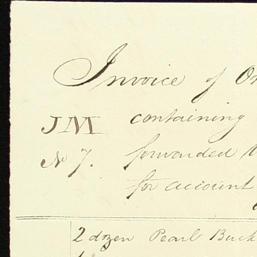 Invoice of
JM containing
No 7. forwarded
for account
2 dozen Pearl Buck